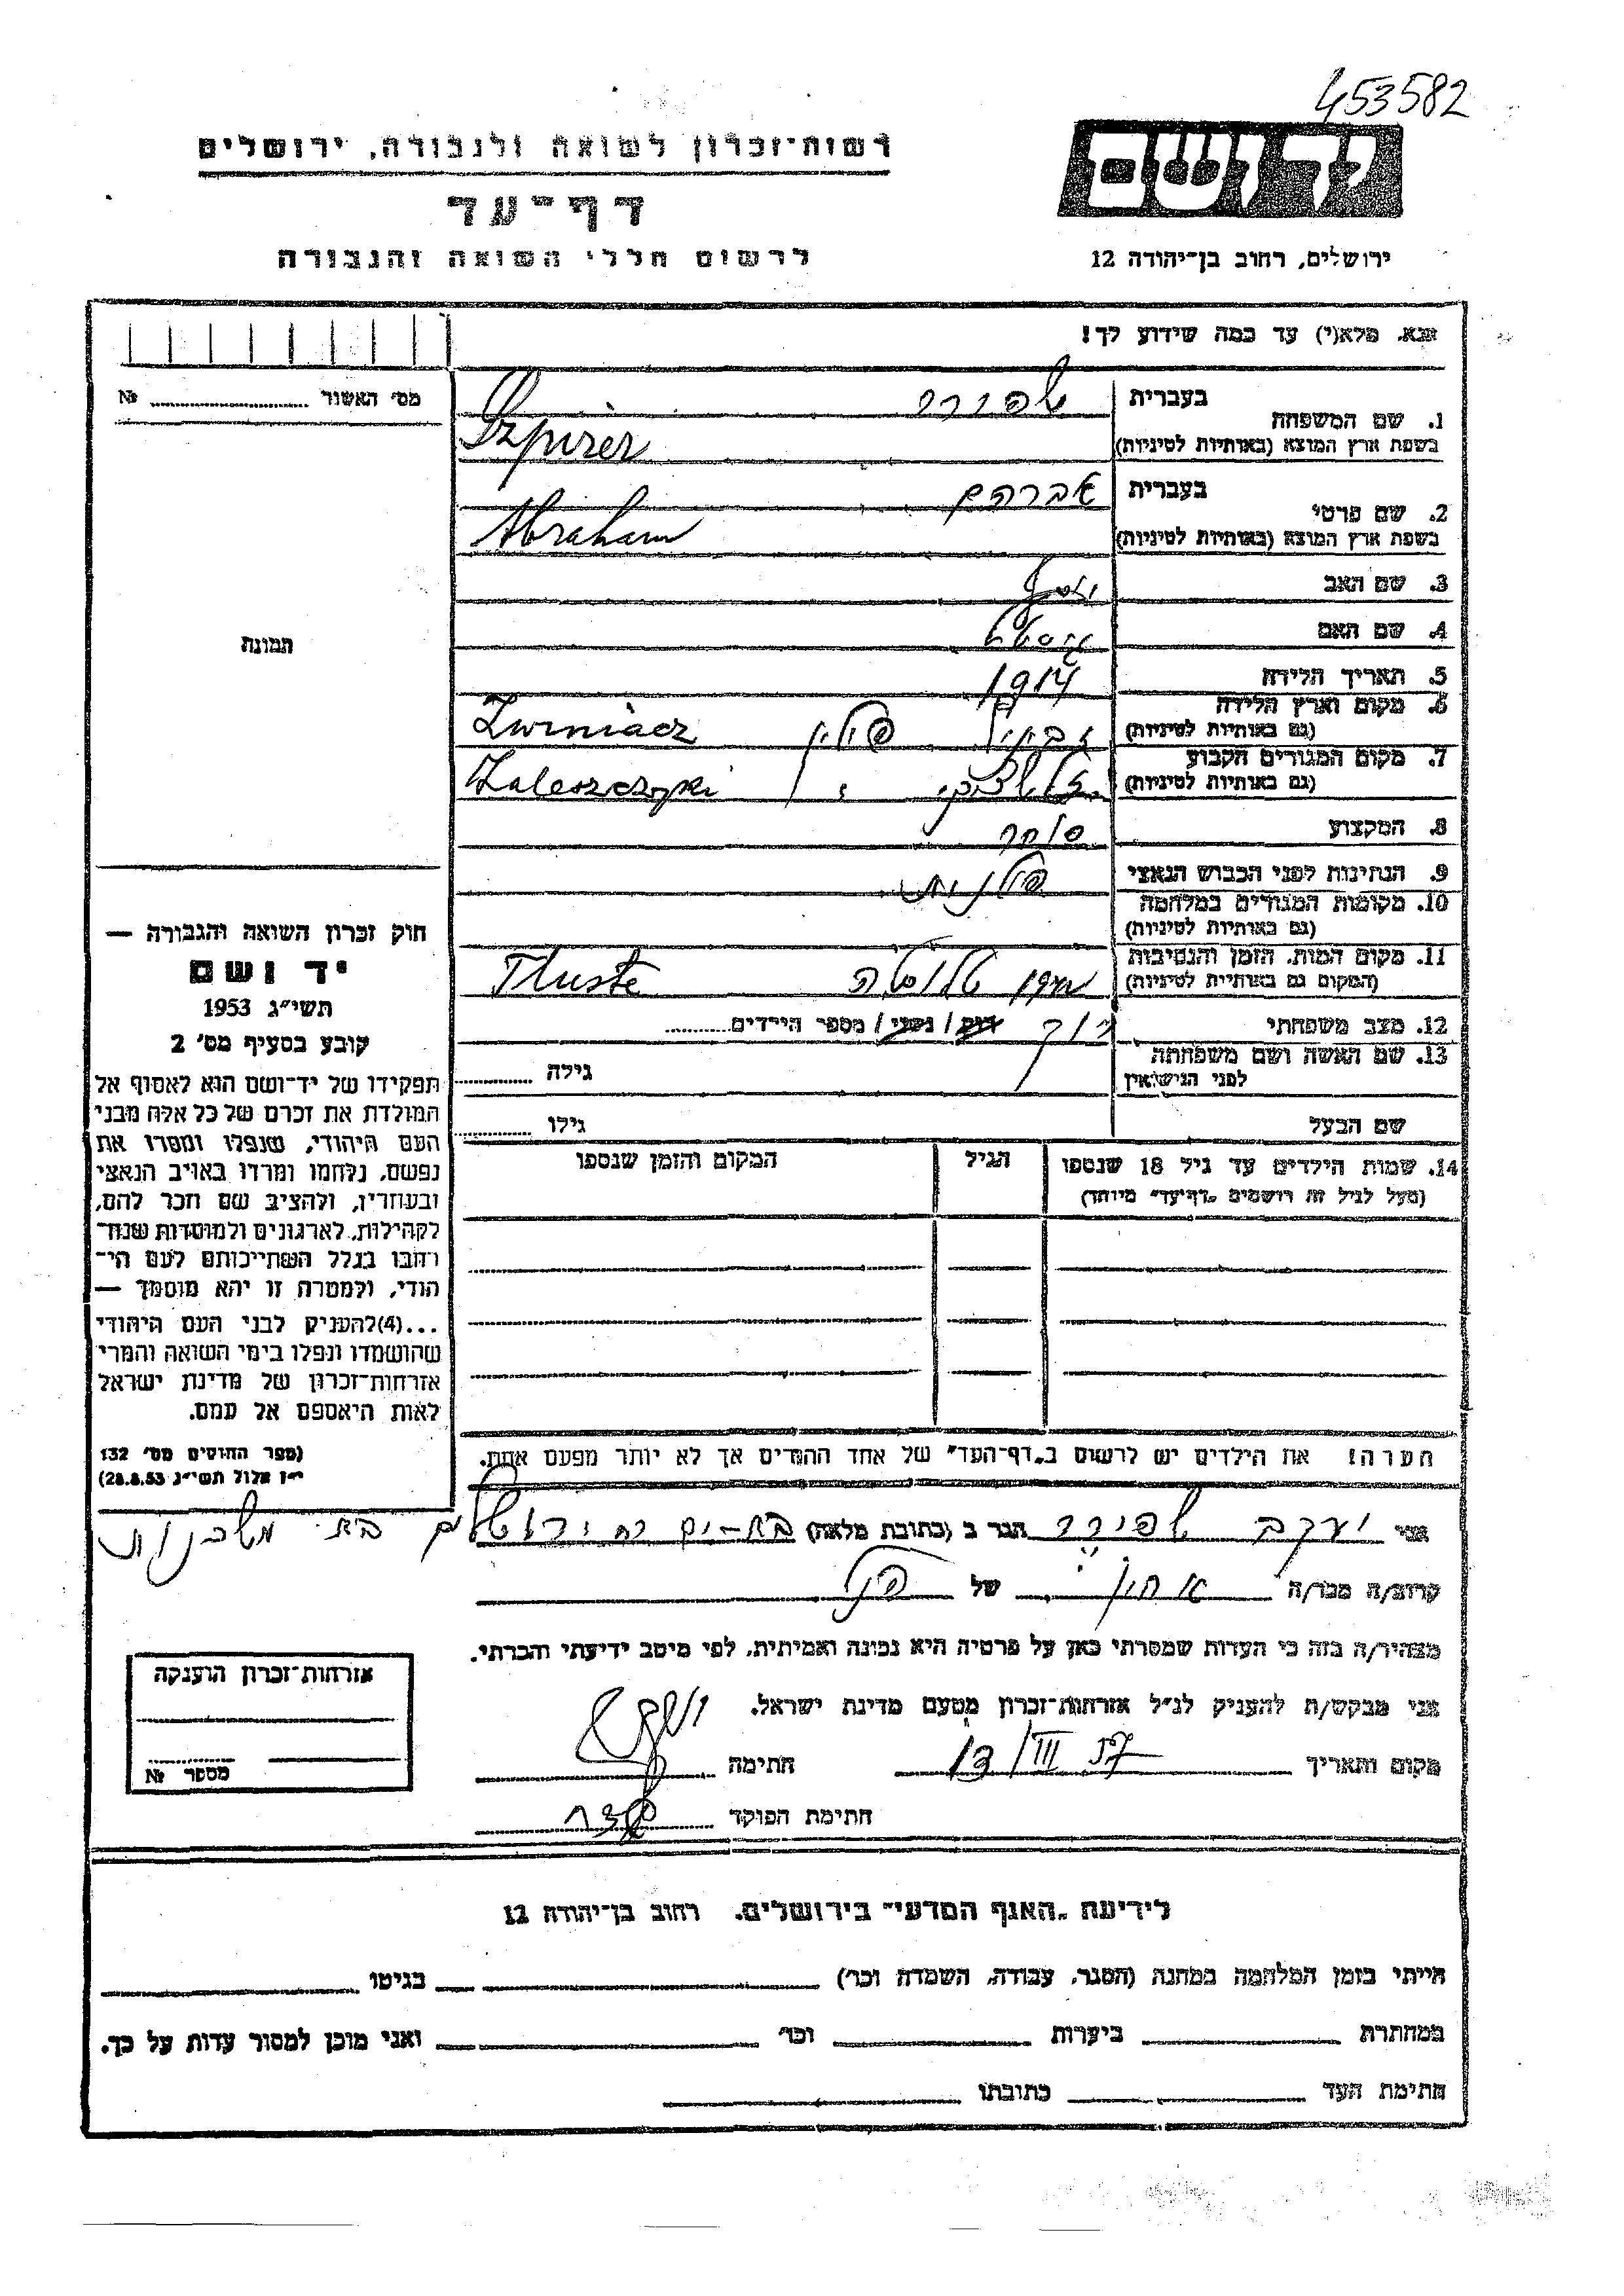 453582
יד ושם
רשות־זכרון לשואה ולגבורה, ירושלים
דף־עד
לרשום חללי השואה והגבורה
ירושלים, רחוב בן־יהודה 12
אנא, מלא(י) עד כמה שידוע לך!
מס׳ האשור № 
1. שם המשפחה
בעברית שפירר
בשפת ארץ המוצא (באותיות לטיניות) Szpirer
2. שם פרטי
בעברית אברהם
בשפת ארץ המוצא (באותיות לטיניות) Abraham
3. שם האב יוסף
4. שם האם
5. תאריך הלידה 1914
6. מקום וארץ הלידה פולין
(גם באותיות לטיניות) Zwiniacz
7. מקום המגורים הקבוע
(גם באותיות לטיניות) Zaleszczyki
8. המקצוע סוחר
9. הנתינות לפני הכבוש הנאצי פולנית
10. מקומות המגורים במלחמה
(גם באותיות לטיניות)
11. מקום המות, הזמן והנסיבות
(המקום גם באותיות לטיניות) טלוסטה Tluste
12. מצב משפחתי רוק / נשוי / מספר הילדים
13. שם האשה ושם משפחתה גילה
לפני הנישואין
שם הבעל גילו
14. שמות הילדים עד גיל 18 שנספו הגיל המקום והזמן שנספו
(מעל לגיל זה רושמים „דף־עד״ מיוחד)
הערה! את הילדים יש לרשום ב„דף־העד״ של אחד ההורים אך לא יותר מפעם אחת.
תמונה
חוק זכרון השואה והגבורה —
יד ושם
תשי״ג 1953
קובע בסעיף מס׳ 2
תפקידו של יד־ושם הוא לאסוף אל
המולדת את זכרם של כל אלה מבני
העם היהודי, שנפלו ומסרו את
נפשם, נלחמו ומרדו באויב הנאצי
ובעוזריו, ולהציב שם וזכר להם,
לקהילות, לארגונים ולמוסדות שנח־
רבו בגלל השתייכותם לעם הי־
הודי, ולמטרה זו יהא מוסמך —
...(4) להעניק לבני העם היהודי
שהושמדו ונפלו בימי השואה והמרי
אזרחות־זכרון של מדינת ישראל
לאות היאספם אל עמם.
(ספר החוקים מס׳ 132
י״ז אלול תשי״ג 28.8.53)
אני יעקב שפירר הגר ב (כתובת מלאה) בת־ים רח ירושלים
קרוב/ה מכר/ה אחיו של
מצהיר/ה בזה כי העדות שמסרתי כאן על פרטיה היא נכונה ואמיתית, לפי מיטב ידיעתי והכרתי.
אני מבקש/ת להעניק לנ״ל אזרחות־זכרון מטעם מדינת ישראל.
מקום ותאריך 13/III 57 חתימה
חתימת הפוקד
אזרחות־זכרון הוענקה
מספר №
לידיעת „האגף המדעי״ בירושלים, רחוב בן־יהודה 12
הייתי בזמן המלחמה במחנה (הסגר, עבודה, השמדה וכר׳) בגיטו
במחתרת ביערות וכר׳ ואני מוכן למסור עדות על כך.
חתימת העד כתובתו